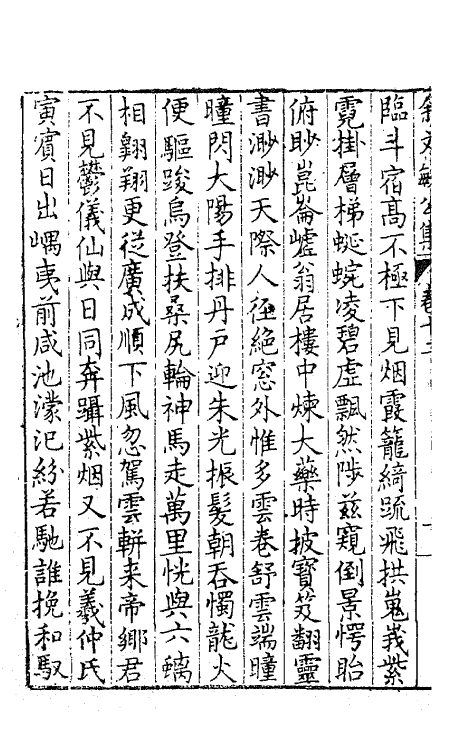 臨斗宿高不極下見烟霞籠綺疏飛拱嵬莪紫
霓掛層梯蜒蜿凌碧虛飄然陟兹窺倒景愕眙
俯眇崑崙嶟翁居樓中煉大藥時披寶笈翻靈
書渺渺天際人徑絶窓外惟多雲卷舒雲端曈
曈閃大陽手排丹戶迎朱光振髮朝吞燭龍火
便驅踆烏登扶桑尻輪神馬走萬里恍與六螭
相翱翔更從廣成順下風忽駕雲軿来帝鄉君
不見鬱儀仙與日同奔躡紫烟又不見羲仲氏
寅賓日出嵎夷前咸池濛汜紛若馳誰挽和馭